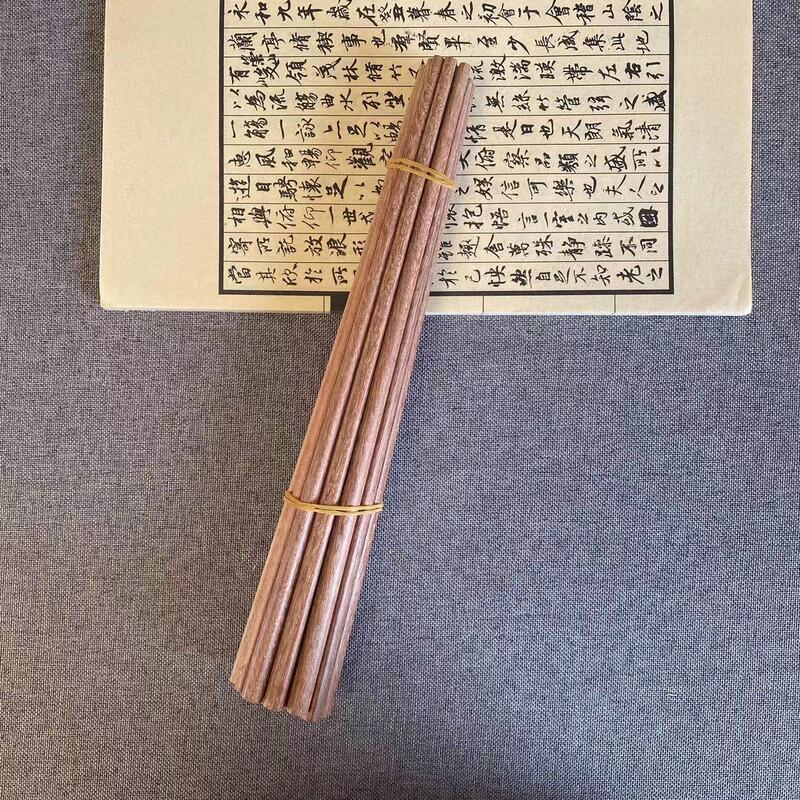 永和九年歲在癸丑暮春之初會于會稽山陰之
蘭亭脩稧事也羣賢畢至少長咸集此地
有崇山峻領茂林脩竹流激湍暎帶左右引
以為流觴曲水列坐無絲竹管弦之盛
一觴一詠亦足以暢情是日也天朗氣清
惠風和暢仰觀大俯察品類之盛所以
遊目騁懷足以之娛信可樂也夫人之
相與俯仰一世或抱悟言一室之内或因
寄所託放浪形趣舍萬殊静躁不同
當其欣於所於己怏然自足不知老之